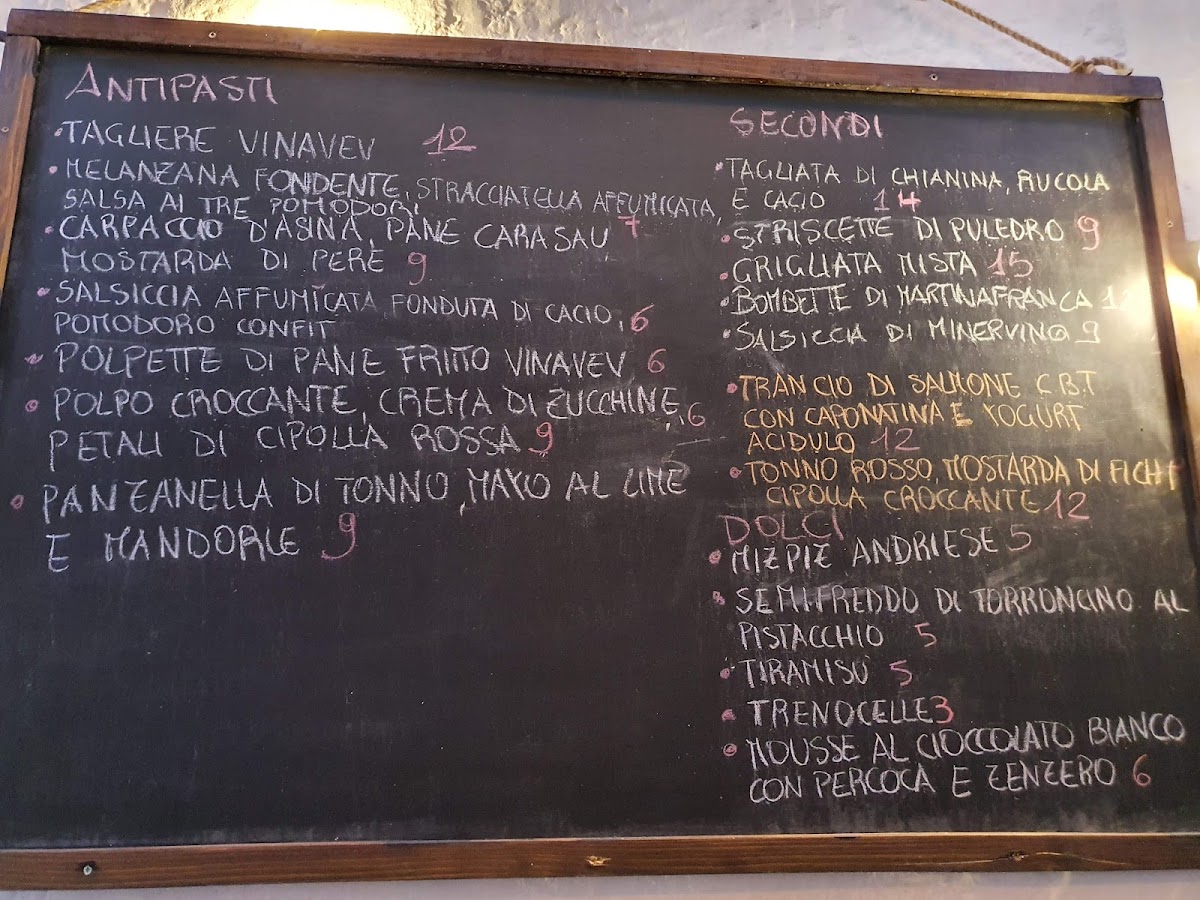 ANTIPASTI
• TAGLIERE VINAVEV 12
• MELANZANA FONDENTE, STRACCIATELLA AFFUMICATA,
SALSA AI TRE POMODORI 7
• CARPACCIO D'ASINA, PANE CARASAU,
MOSTARDA DI PERE 9
• SALSICCIA AFFUMICATA, FONDUTA DI CACIO, 6
POMODORO CONFIT
• POLPETTE DI PANE FRITTO VINAVEV 6
• POLPO CROCCANTE, CREMA DI ZUCCHINE, 6
PETALI DI CIPOLLA ROSSA 9
• PANZANELLA DI TONNO, MAYO AL LIME
E MANDORLE 9
SECONDI
• TAGLIATA DI CHIANINA, RUCOLA
E CACIO 14
• STRISCETTE DI PULEDRO 9
• GRIGLIATA MISTA 15
• BOMBETTE DI MARTINAFRANCA
• SALSICCIA DI MINERVINO 9
• TRANCIO DI SALMONE C.B.T
CON CAPONATINA E YOGURT
ACIDULO 12
• TONNO ROSSO, MOSTARDA DI FICHI
CIPOLLA CROCCANTE 12
DOLCI
• MIZPIZ ANDRIESE 5
• SEMIFREDDO DI TORRONCINO AL
PISTACCHIO 5
• TIRAMISÙ 5
• TRENOCELLE 3
• MOUSSE AL CIOCCOLATO BIANCO
CON PERCOCA E ZENZERO 6